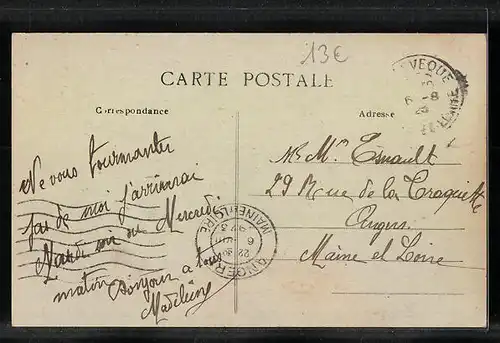 13€
CARTE POSTALE
Correspondance
Adresse
Ne vous tourmanter
pas de moi j'arriverai
Mardi soir ou Mercredi
matin Bonjour a tous
Madeleine
Mr Mme Esnault
29 Rue de la Croquette
Angers
Maine et Loire
EVEQUE
6 - 8
ANGERS
MAINE-ET-LOIRE
22 30
6